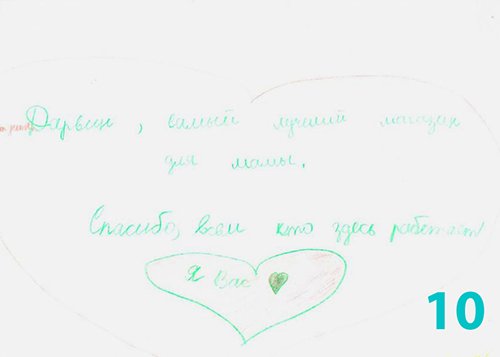 Дарвин, самый лучший магазин
для мамы.
Спасибо, всем кто здесь работает!
Я Вас
10